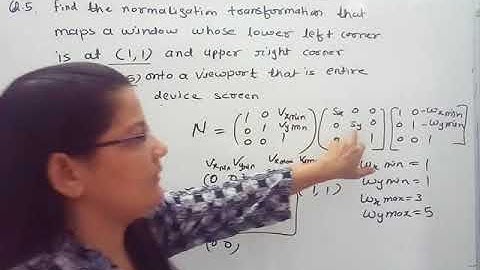 Q.5. Find the normalization transformation that
maps a window whose lower left corner
is at (1,1) and upper right corner
5) onto a viewport that is entire
device screen
N = ( 1 0 Vxmin ) ( Sx 0 0 ) [ 1 0 -Wxmin ]
0 1 Vymin 0 Sy 0 0 1 -Wymin
0 0 1 0 1 0 0 1
Vxmin Vymin Vxmax
(0 0) 1, 1)
Wxmin = 1
Wymin = 1
Wxmax = 3
Wymax = 5
(0 0)